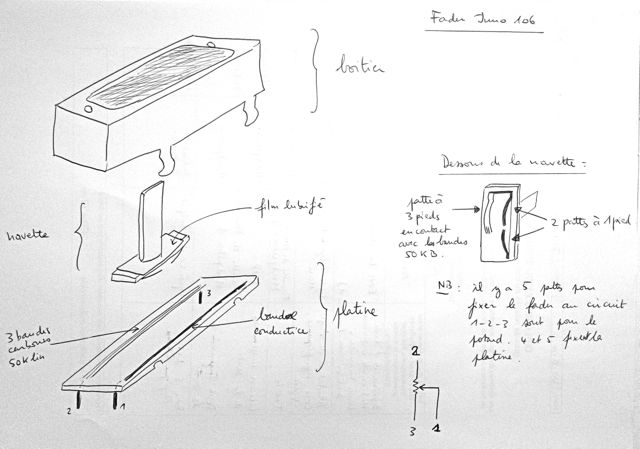 Fader Juno 106
boitier
film lubrifié
navette
3 bandes
carbones
50K lin
bande
conductrice
platine
3
2
1
Dessous de la navette :
patte à
3 pieds
en contact
avec les bandes
50KB.
2 pattes à 1 pied
NB : il y a 5 pattes pour
fixer le fader au circuit
1-2-3 sont pour le
potard. 4 et 5 fixent la
platine.
2
3
1